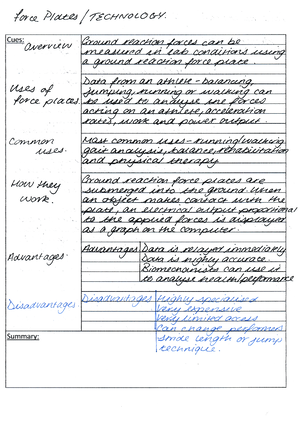 Force Plates / TECHNOLOGY.
Cues:
Overview
Ground reaction forces can be
measured in lab conditions using
a ground reaction force plate.
Uses of
force places
Data from an athlete - balancing,
jumping, running or walking can
be used to analyse the forces
acting on an athlete, acceleration
rates, work and power output.
Common
uses.
Most common uses - running/walking
gait analysis, balance, rehabilitation
and physical therapy
How they
work.
Ground reaction force places are
submerged into the ground. When
an object makes contact with the
plate, an electrical output proportional
to the applied forces is displayed
as a graph on the computer.
Advantages
Advantages Data is relayed immediately
Data is highly accurate.
Biomechanists can use it
to analyse health/performance
Disadvantages
Disadvantages Highly specialised
Very expensive
Very limited access
Can change performers
stride length or jump
technique.
Summary: